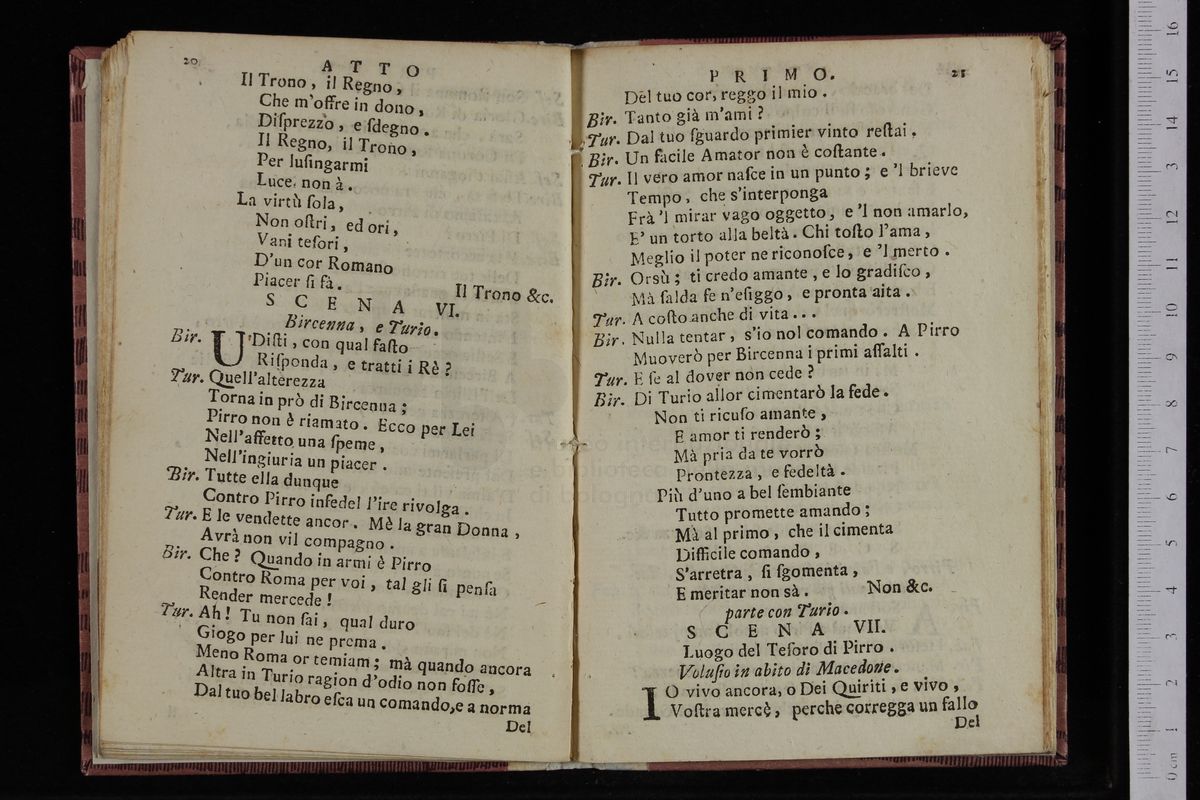 20
ATTO
Il Trono, il Regno,
Che m'offre in dono,
Diſprezzo, e ſdegno.
Il Regno, il Trono,
Per luſingarmi
Luce non à.
La virtù ſola,
Non oſtri, ed ori,
Vani teſori,
D'un cor Romano
Piacer ſi fà. Il Trono &c.
SCENA VI.
Bircenna, e Turio.
Bir. UDiſti, con qual faſto
Riſponda, e tratti i Rè?
Tur. Quell'alterezza
Torna in prò di Bircenna;
Pirro non è riamato. Ecco per Lei
Nell'affetto una ſpeme,
Nell'ingiuria un piacer.
Bir. Tutte ella dunque
Contro Pirro infedel l'ire rivolga.
Tur. E le vendette ancor. Mè la gran Donna,
Avrà non vil compagno.
Bir. Che? Quando in armi è Pirro
Contro Roma per voi, tal gli ſi penſa
Render mercede!
Tur. Ah! Tu non ſai, qual duro
Giogo per lui ne prema.
Meno Roma or temiam; mà quando ancora
Altra in Turio ragion d'odio non foſſe,
Dal tuo bel labro eſca un comando, e a norma
Del
PRIMO.
21
Del tuo cor, reggo il mio.
Bir. Tanto già m'ami?
Tur. Dal tuo ſguardo primier vinto reſtai.
Bir. Un facile Amator non è coſtante.
Tur. Il vero amor naſce in un punto; e 'l brieve
Tempo, che s'interponga
Frà 'l mirar vago oggetto, e 'l non amarlo,
E' un torto alla beltà. Chi toſto l'ama,
Meglio il poter ne riconoſce, e 'l merto.
Bir. Orsù; ti credo amante, e lo gradiſco,
Mà ſalda fe n'eſiggo, e pronta aita.
Tur. A coſto anche di vita...
Bir. Nulla tentar, s'io nol comando. A Pirro
Muoverò per Bircenna i primi aſſalti.
Tur. E ſe al dover non cede?
Bir. Di Turio allor cimentarò la fede.
Non ti ricuſo amante,
E amor ti renderò;
Mà pria da te vorrò
Prontezza, e fedeltà.
Più d'uno a bel ſembiante
Tutto promette amando;
Mà al primo, che il cimenta
Difficile comando,
S'arretra, ſi ſgomenta,
E meritar non sà. Non &c.
parte con Turio.
SCENA VII.
Luogo del Teſoro di Pirro.
Voluſio in abito di Macedone.
IO vivo ancora, o Dei Quiriti, e vivo,
Voſtra mercè, perche corregga un fallo
Del